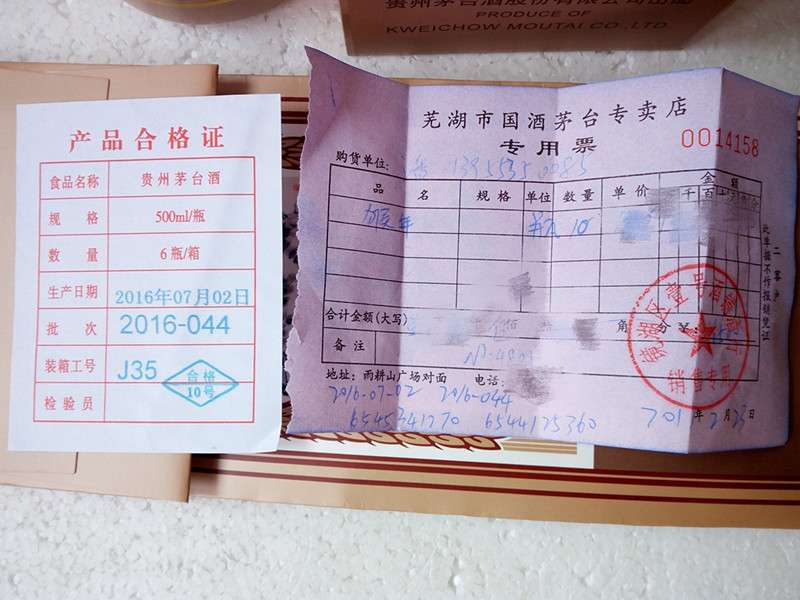 贵州茅台酒股份有限公司出品
PRODUCE OF
KWEICHOW MOUTAI CO.,LTD.
产品合格证
食品名称 贵州茅台酒
规格 500ml/瓶
数量 6瓶/箱
生产日期 2016年07月02日
批次 2016-044
装箱工号 J35
检验员
合格
10号
芜湖市国酒茅台专卖店
专用票
0014158
购货单位:
品名 规格 单位 数量 单价 金额
千百十元角分
10
合计金额(大写) 佰 拾 角 分 ¥:
备注
二客户
此单据不作报销凭证
镜湖区壹号
销售专用
地址:雨耕山广场对面 电话:
2016-07-02 2016-044
6544125360
年2月25日